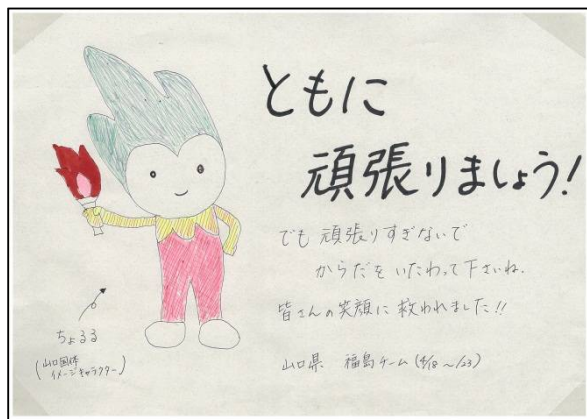 ともに
頑張りましょう!
でも 頑張りすぎないで
からだをいたわって下さいね.
皆さんの笑顔に 救われました!!
山口県 福島チーム (4/18 ~ 4/23)
ちょるる
(山口国体
イメージキャラクター)